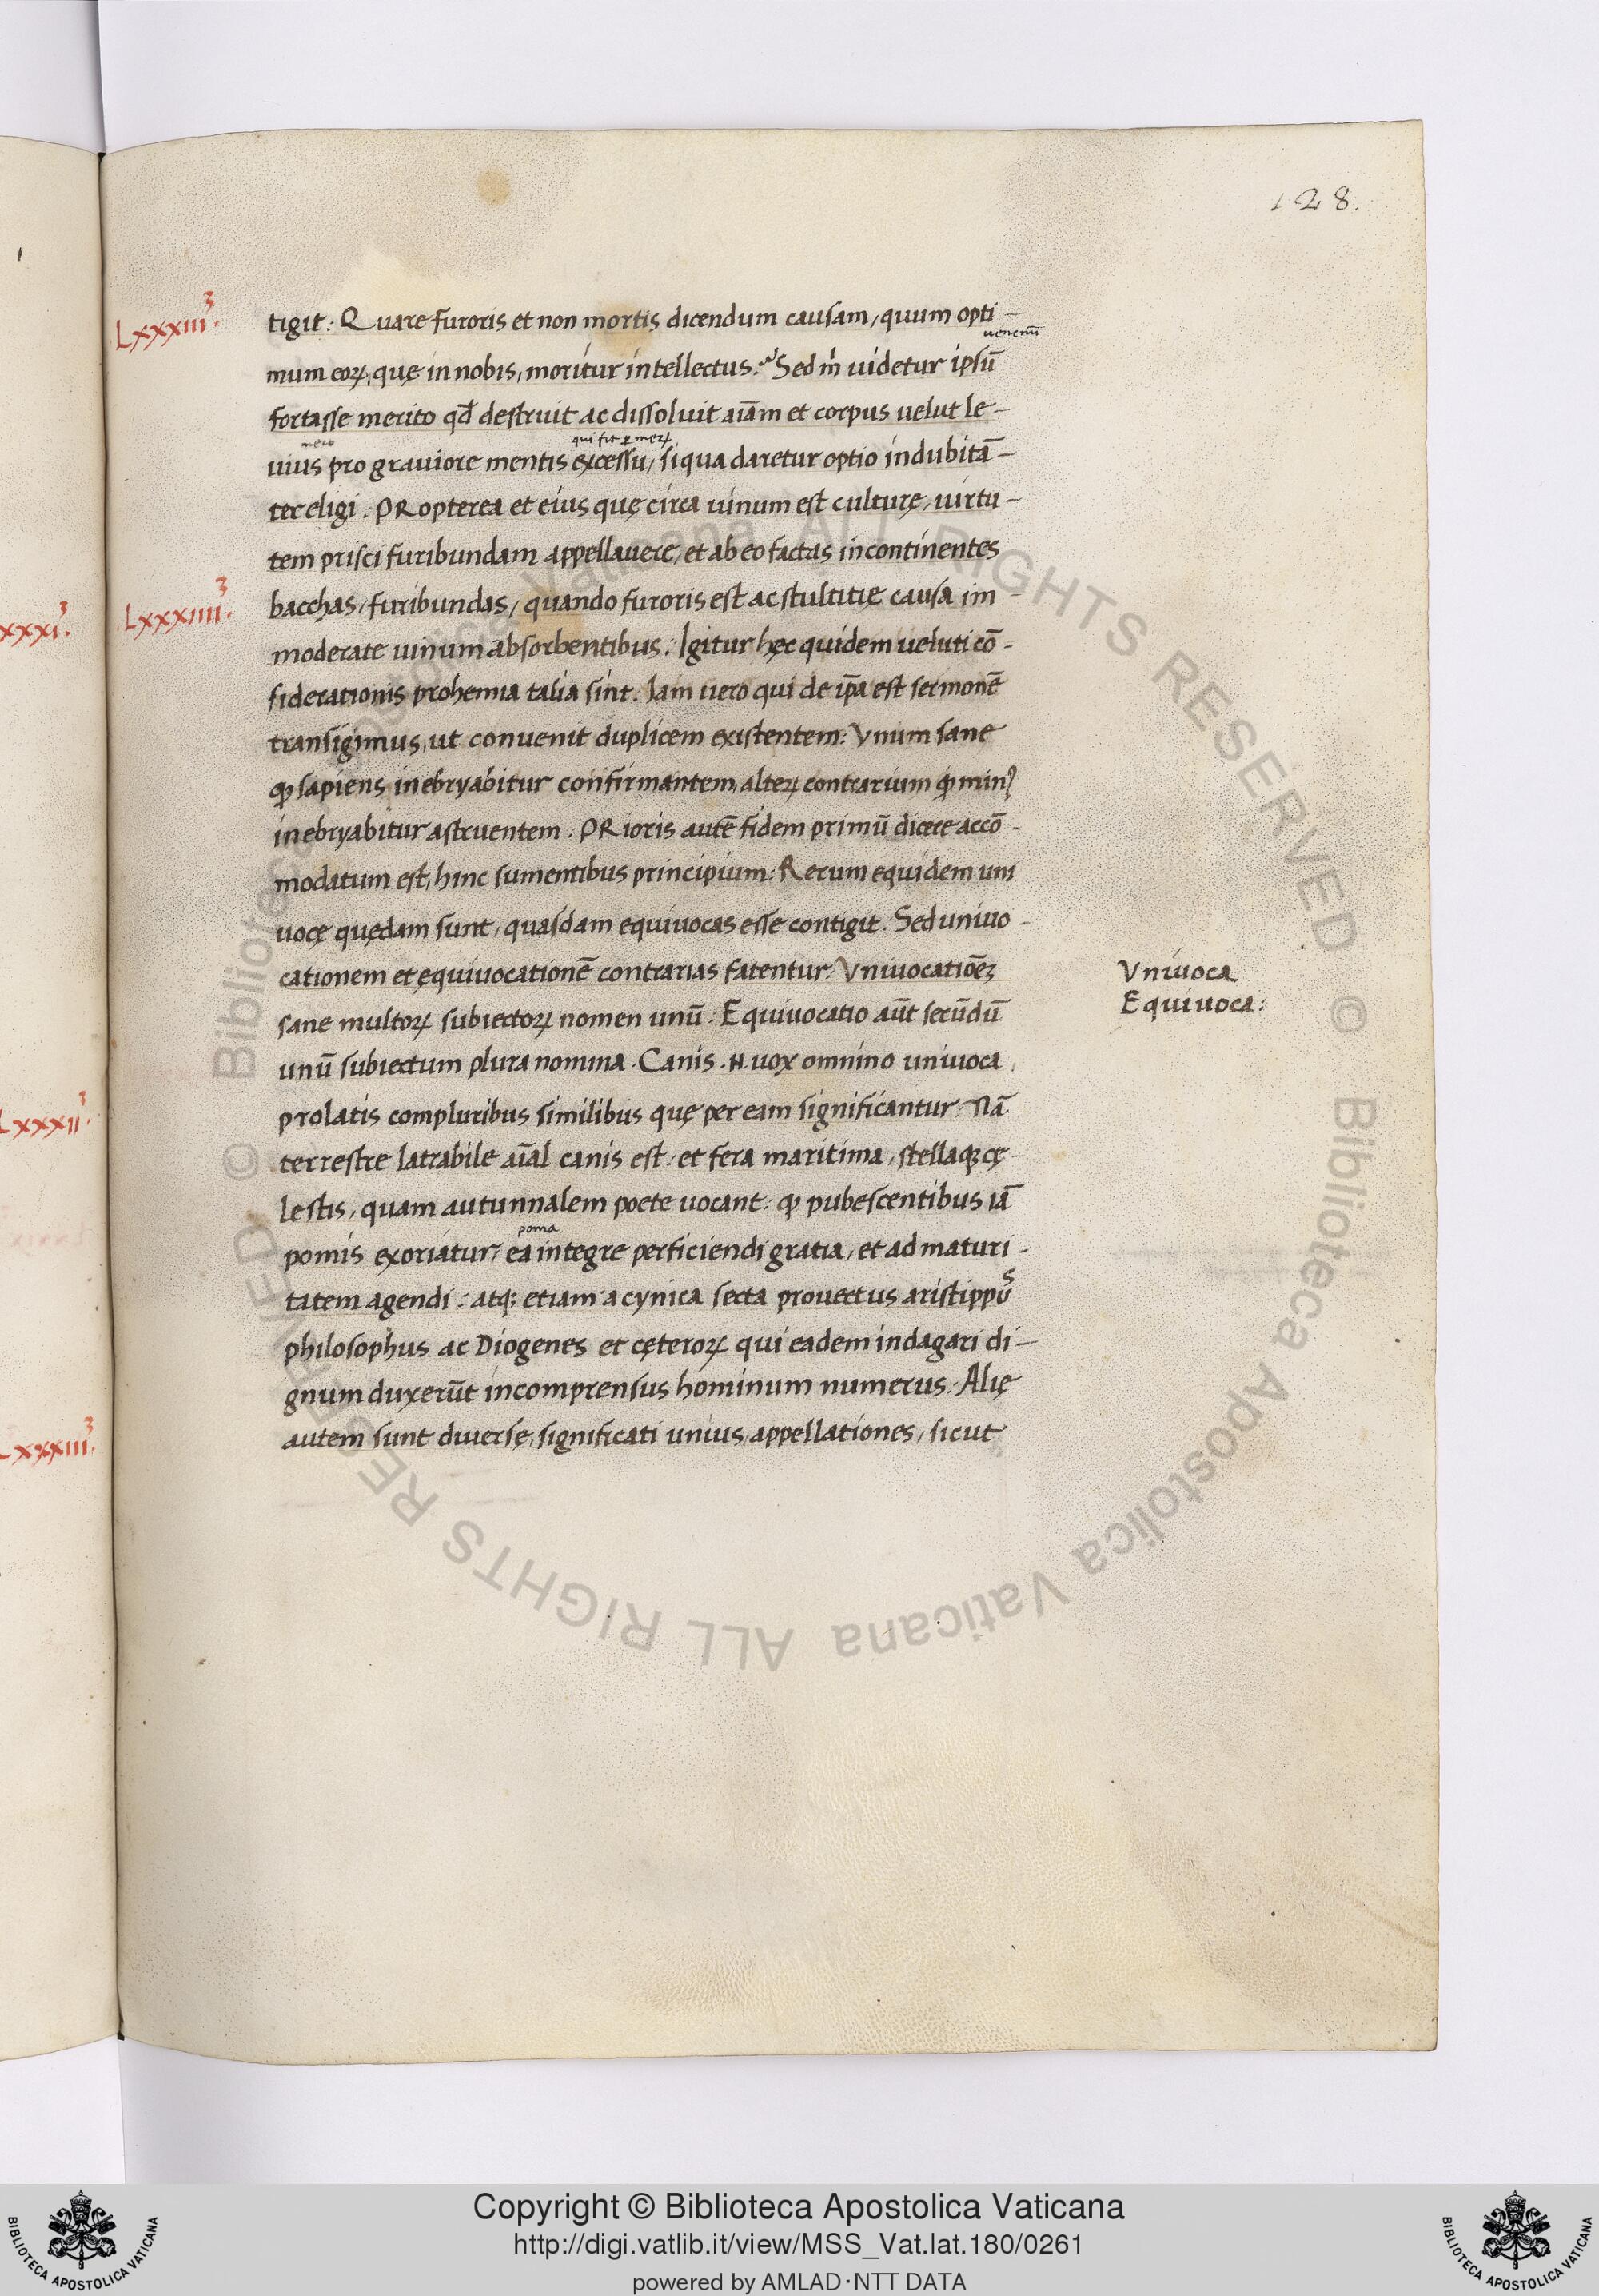 128.
Lxxxiii³.
tigit: Quare furoris et non mortis dicendum causam, quum opti-
uenenū
mum eoꝝ, quę in nobis, moritur intellectus. Sed m̄ uidetur ipsū
fortasse merito qd̄ destruit ac dissoluit aīam et corpus uelut le-
mero
qui fit ꝑ meꝝ
uius pro grauiore mentis excessu, siqua daretur optio indubitā-
ter eligi. PRopterea et eius quę circa uinum est culturę, uirtu-
tem prisci furibundam appellauere, et ab eo factas incontinentes
Lxxxiiii³.
bacchas, furibundas, quando furoris est ac stultitię causa im-
moderate uinum absorbentibus. Igitur hęc quidem ueluti cō-
siderationis prohemia talia sint. Iam uero qui de ip̄a est sermonē
transigimus, ut conuenit duplicem existentem: Vnum sane
ꝙ sapiens inebryabitur confirmantem, alteꝝ contrarium ꝙ minꝰ
inebryabitur astruentem. PRioris autē fidem primū dicere accō-
modatum est, hinc sumentibus principium: Rerum equidem uni
uocę quędam sunt, quasdam equiuocas esse contigit. Sed uniuo-
cationem et ęquiuocationē contrarias fatentur: Vniuocatiōeꝫ
sane multoꝝ subiectoꝝ nomen unū: Equiuocatio aūt secūdū
Vniuoca
Equiuoca:
unū subiectum plura nomina. Canis .N. uox omnino uniuoca,
prolatis compluribus similibus quę per eam significantur. Nā
terrestre latrabile aīal canis est: et fera maritima, stellaqꝫ cę-
lestis, quam autunnalem poete uocant: ꝙ pubescentibus iā
poma
pomis exoriatur, ea integre perficiendi gratia, et ad maturi-
tatem agendi: atqꝫ etiam a cynica secta prouectus aristippūs
philosophus ac Diogenes et cęteroꝝ qui eadem indagari di-
gnum duxerūt incomprensus hominum numerus. Alię
autem sunt diuersę, significati unius, appellationes, sicut
xxxi³.
Lxxxii³.
Lxxxiii³.
© Biblioteca Apostolica Vaticana ALL RIGHTS RESERVED © Biblioteca Apostolica Vaticana ALL RIGHTS RESERVED
Copyright © Biblioteca Apostolica Vaticana
http://digi.vatlib.it/view/MSS_Vat.lat.180/0261
powered by AMLAD·NTT DATA
BIBLIOTECA APOSTOLICA VATICANA
BIBLIOTECA APOSTOLICA VATICANA